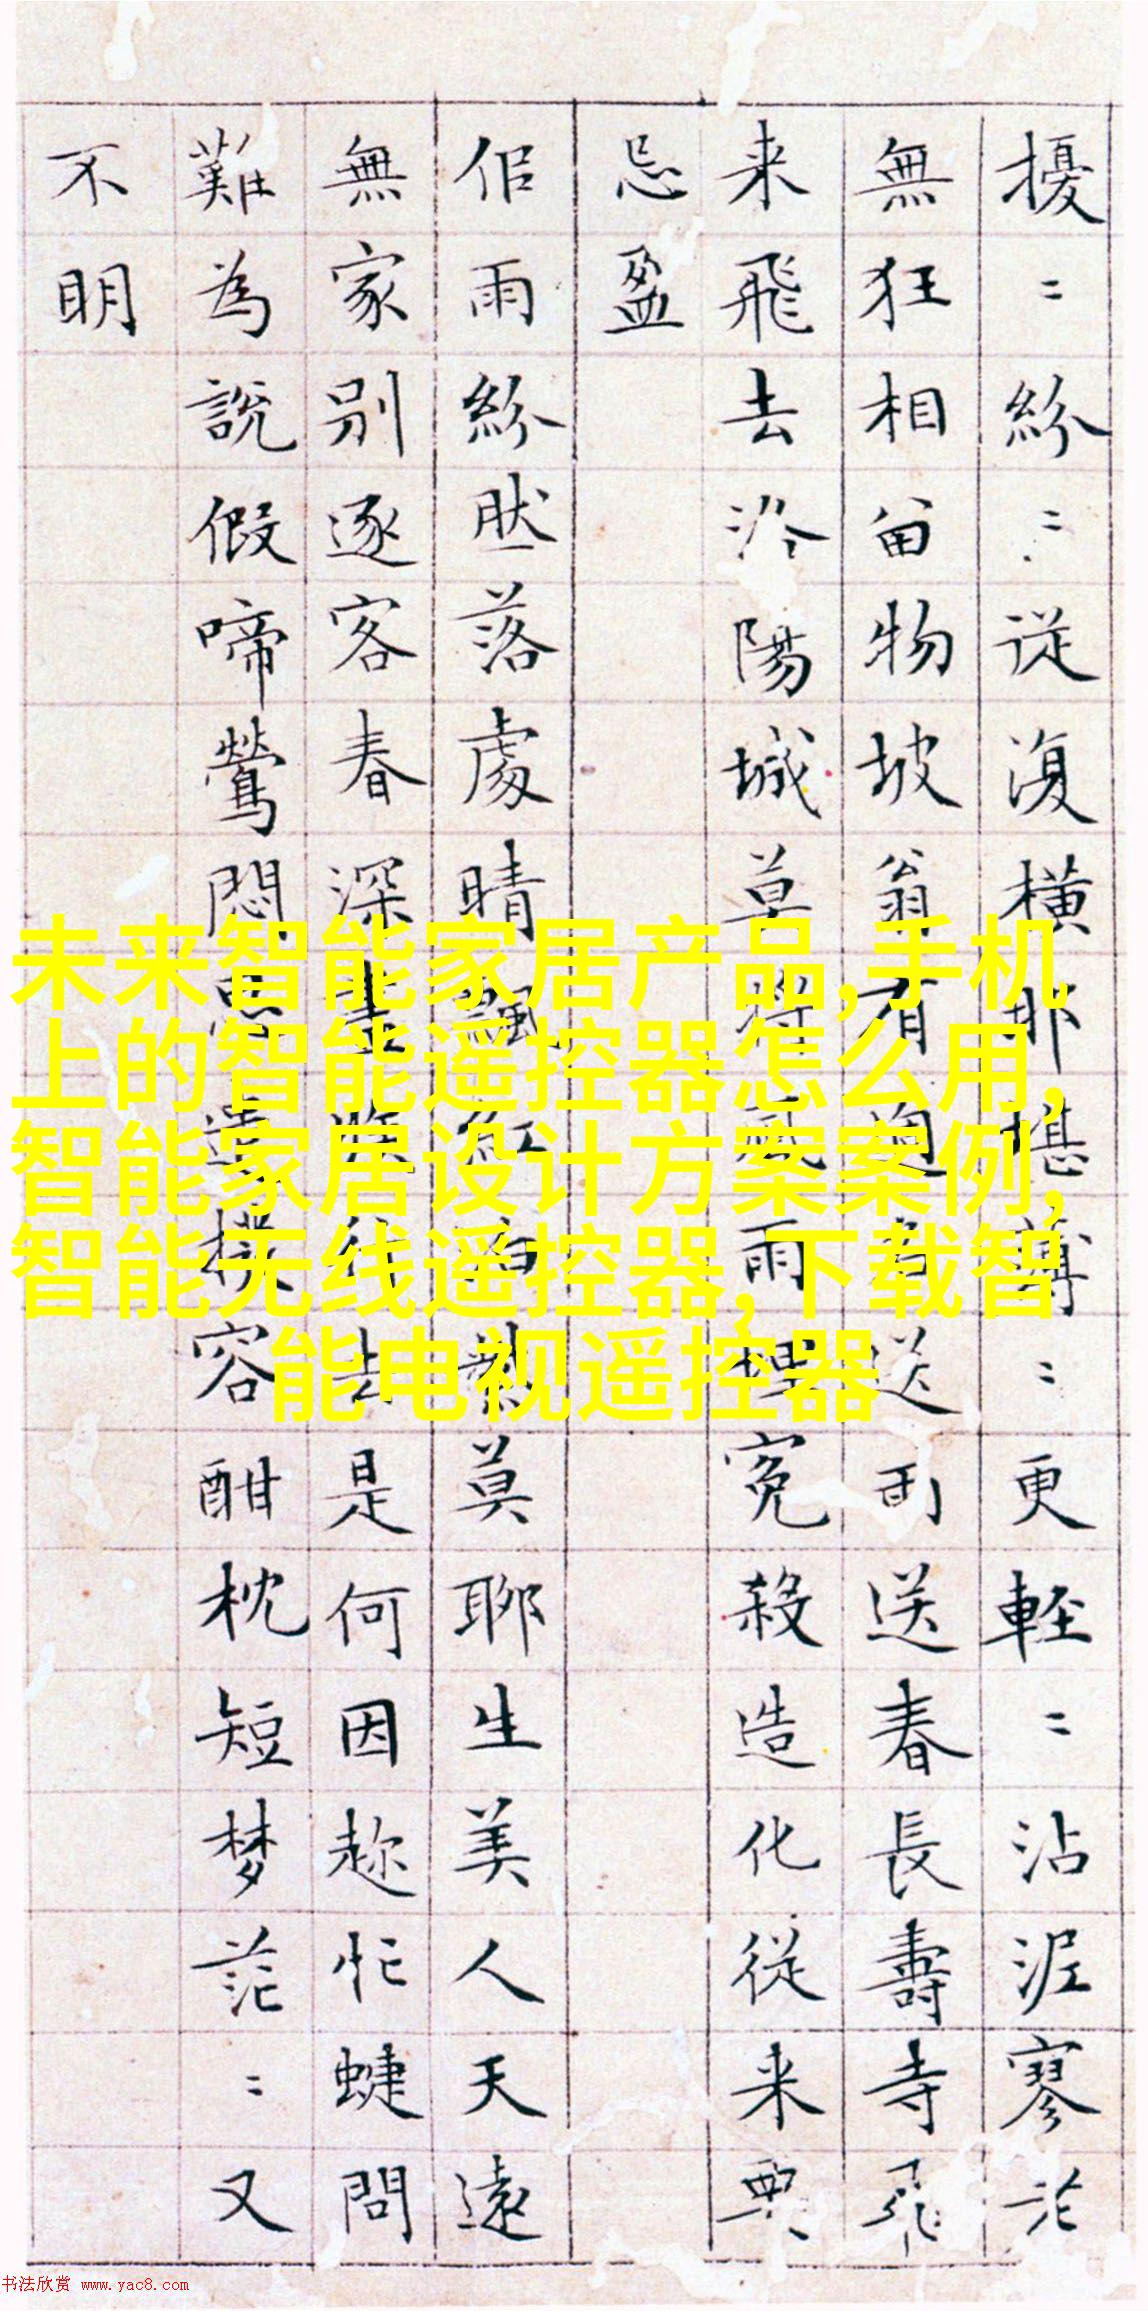 擾〻紛〻従復橫耶堪〻更輕〻沾泥寥
無狂相留物坡翁有送送春長壽寺飛
来飛去陽城草雨埋冤殺造化從来
忌盈
佀雨紛肰落處晴飄紅莫聊生美人天遠
無家別逐客春深盡去是何因趂忙蜨問
難為說假啼鶯悶容酣枕短梦茫〻又
不明
未来智能家居产品,手机
上的智能遥控器怎么用,
智能家居设计方案案例,
智能无线遥控器,下载智
能电视遥控器
书法欣赏 www.yac8.com